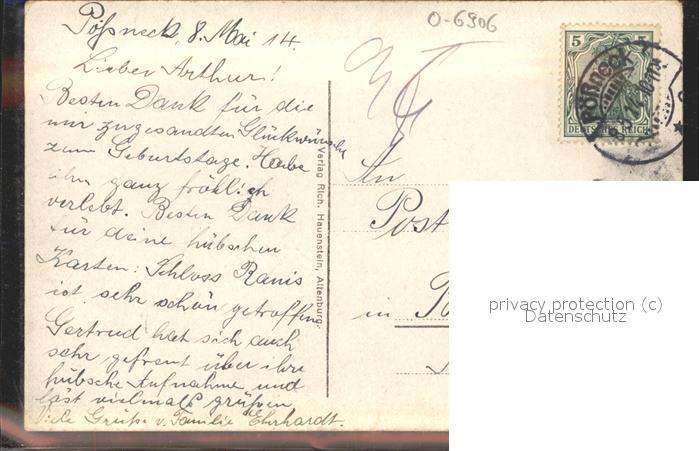 O-6906
Pößneck, 8. Mai 14.
Lieber Arthur!
Besten Dank für die
mir zugesandten Glückwünsche
zum Geburtstage. Habe
ihn ganz fröhlich
verlebt. Besten Dank
für deine hübschen
Karten: Schloss Ranis
ist sehr schön getroffen
Gertrud hat sich auch
sehr gefreut über ihre
hübsche Aufnahme und
läst vielmals grüßen
Viele Grüße v. Familie Ehrhardt.
Verlag Rich. Hauenstein, Altenburg.
5 5
DEUTSCHES REICH
PÖßNECK
An
Post
in
privacy protection (c)
Datenschutz